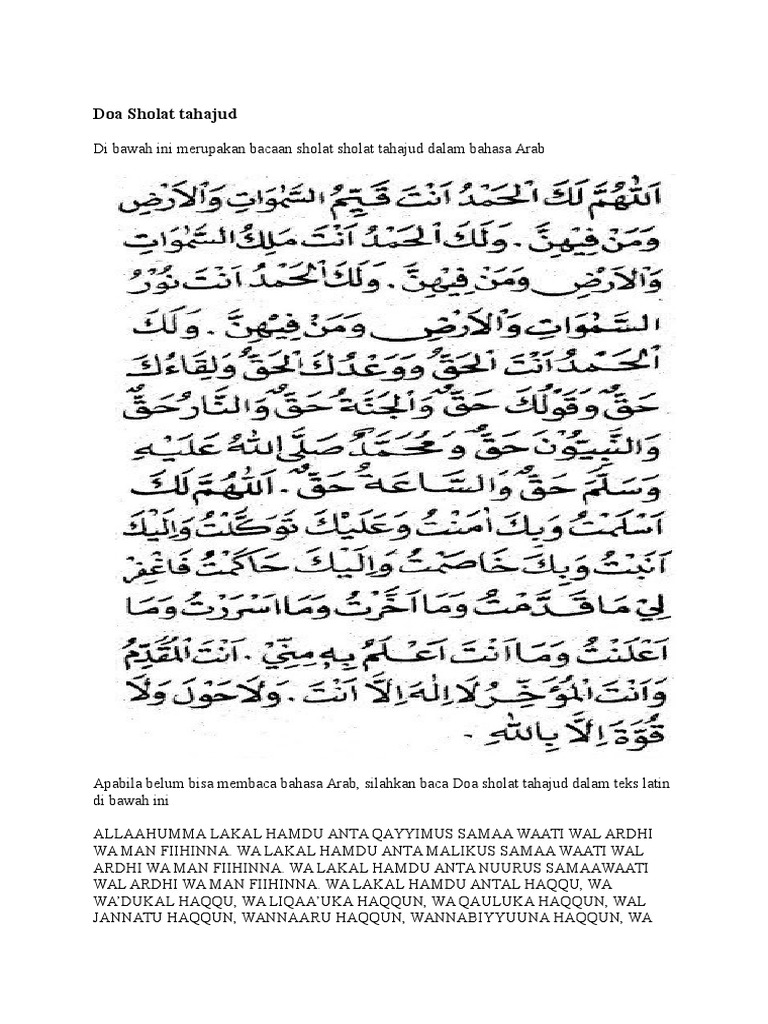 Doa Sholat tahajud
Di bawah ini merupakan bacaan sholat sholat tahajud dalam bahasa Arab
اَللّٰهُمَّ لَكَ الْحَمْدُ اَنْتَ قَيِّمُ السَّمٰوَاتِ وَالْاَرْضِ
وَمَنْ فِيْهِنَّ . وَلَكَ الْحَمْدُ اَنْتَ مَلِكُ السَّمٰوَاتِ
وَالْاَرْضِ وَمَنْ فِيْهِنَّ . وَلَكَ الْحَمْدُ اَنْتَ نُوْرُ
السَّمٰوَاتِ وَالْاَرْضِ وَمَنْ فِيْهِنَّ . وَلَكَ
الْحَمْدُ اَنْتَ الْحَقُّ وَوَعْدُكَ الْحَقُّ وَلِقَاءُكَ
حَقٌّ وَقَوْلُكَ حَقٌّ وَالْجَنَّةُ حَقٌّ وَالنَّارُ حَقٌّ
وَالنَّبِيُّوْنَ حَقٌّ وَمُحَمَّدٌ صَلَّى اللهُ عَلَيْهِ
وَسَلَّمَ حَقٌّ وَالسَّاعَةُ حَقٌّ . اَللّٰهُمَّ لَكَ
اَسْلَمْتُ وَبِكَ اٰمَنْتُ وَعَلَيْكَ تَوَكَّلْتُ وَاِلَيْكَ
اَنَبْتُ وَبِكَ خَاصَمْتُ وَاِلَيْكَ حَاكَمْتُ فَاغْفِرْ
لِيْ مَا قَدَّمْتُ وَمَا اَخَّرْتُ وَمَا اَسْرَرْتُ وَمَا
اَعْلَنْتُ وَمَا اَنْتَ اَعْلَمُ بِهٖ مِنِّيْ . اَنْتَ الْمُقَدِّمُ
وَاَنْتَ الْمُؤَخِّرُ لَا اِلٰهَ اِلَّا اَنْتَ . وَلَا حَوْلَ وَلَا
قُوَّةَ اِلَّا بِاللهِ .
Apabila belum bisa membaca bahasa Arab, silahkan baca Doa sholat tahajud dalam teks latin
di bawah ini
ALLAAHUMMA LAKAL HAMDU ANTA QAYYIMUS SAMAA WAATI WAL ARDHI
WA MAN FIIHINNA. WA LAKAL HAMDU ANTA MALIKUS SAMAA WAATI WAL
ARDHI WA MAN FIIHINNA. WA LAKAL HAMDU ANTA NUURUS SAMAAWAATI
WAL ARDHI WA MAN FIIHINNA. WA LAKAL HAMDU ANTAL HAQQU, WA
WA'DUKAL HAQQU, WA LIQAA'UKA HAQQUN, WA QAULUKA HAQQUN, WAL
JANNATU HAQQUN, WANNAARU HAQQUN, WANNABIYYUUNA HAQQUN, WA